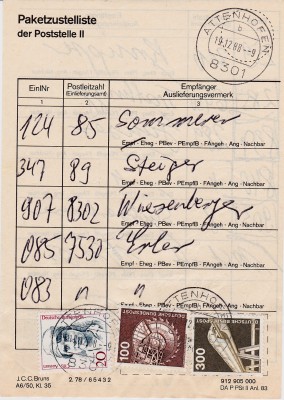 Paketzustelliste
der Poststelle II
ATTENHOFEN
b
19.12.88.-9
8301
EinlNr Postleitzahl (Einlieferungsamt) Empfänger Auslieferungsvermerk
1 2 3
124 85 Sommerer
Empf - Eheg - PBev - PEmpfB - FAngeh - Ang - Nachbar
347 89 Steiger
Empf - Eheg - PBev - PEmpfB - FAngeh - Ang - Nachbar
907 8302 Wiesenberger
Empf - Eheg - PBev - PEmpfB - FAngeh - Ang - Nachbar
085 7530
Empf - Eheg - PBev - PEmpfB - FAngeh - Ang - Nachbar
083 " "
Empf - Eheg - PBev - PEmpfB - FAngeh - Ang - Nachbar
ATTENHOFEN
20
100 DEUTSCHE BUNDESPOST
300 DEUTSCHE BUNDESPOST
J.C.C. Bruns
A6/50, Kl. 35
2.78 / 65432
912 905 000
DA P PSt II Anl. 83